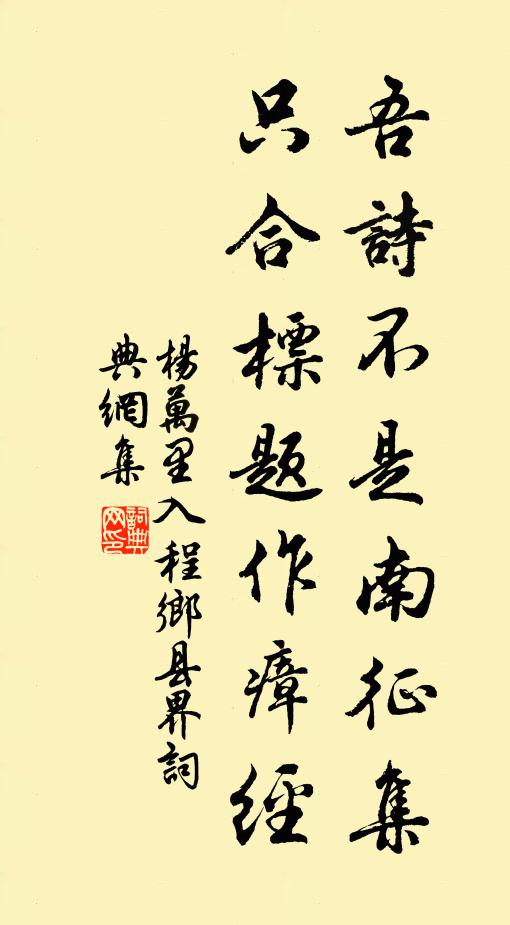 吾詩不是南征集
只合標题作瘴經
楊萬里入程鄉县界詞
典網集
詞典网印